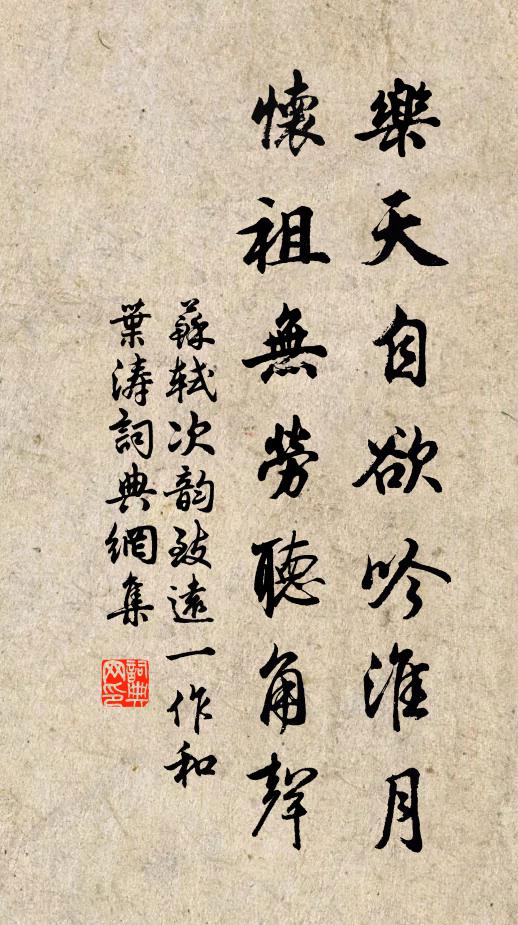 樂天自欲吟淮月
懷祖無勞聽角聲
蘇軾次韵致遠一作和
葉濤詞典網集
詞典网印